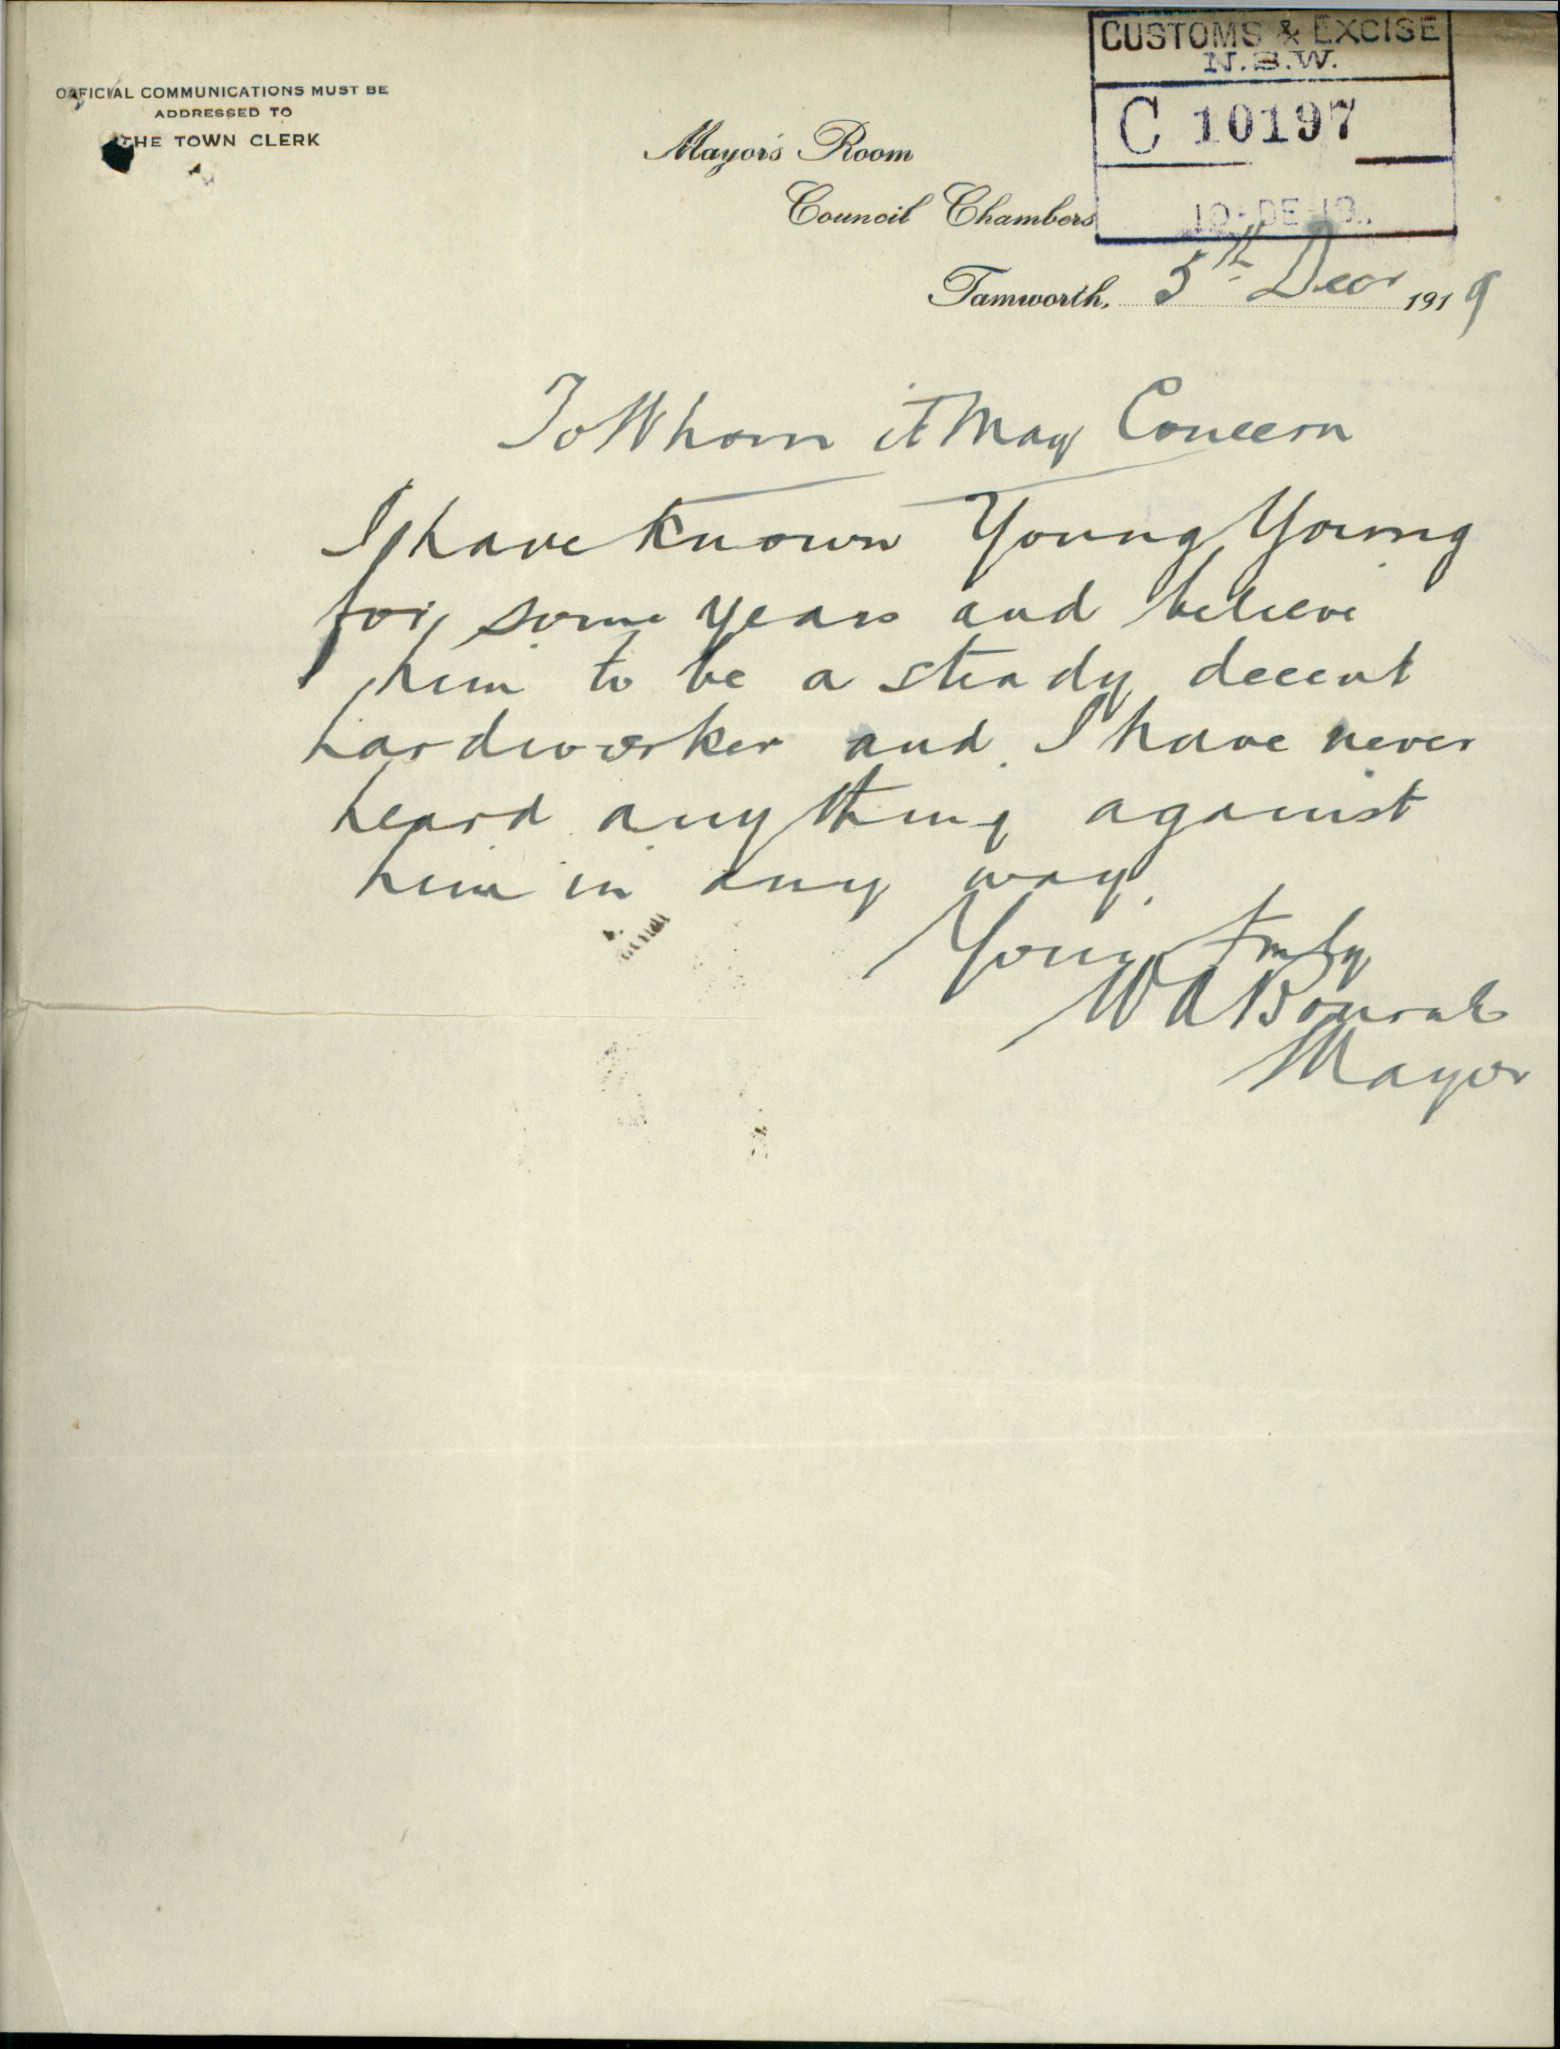 OFFICIAL COMMUNICATIONS MUST BE
ADDRESSED TO
THE TOWN CLERK
CUSTOMS & EXCISE
N.S.W.
C 10197
10-DE-19
Mayor's Room
Council Chambers
Tamworth, 5th Decr 1919
To Whom it May Concern
I have known Young Young
for some years and believe
him to be a steady decent
hardworker and I have never
heard anything against
him in any way.
Yours truly
W A
Mayor